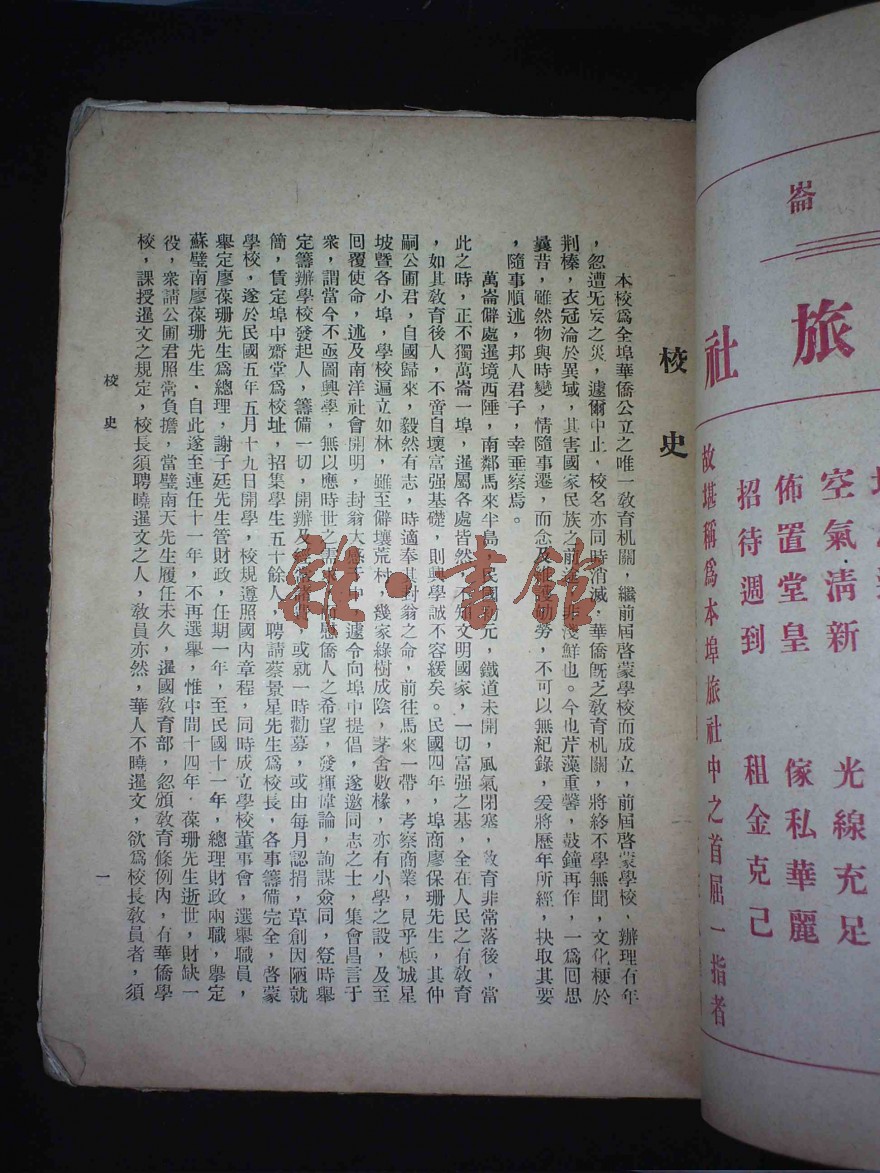 崙
旅社
空氣清新
光線充足
佈置堂皇
傢私華麗
招待週到
租金克己
故堪稱爲本埠旅社中之首屈一指者
校史
本校爲全埠華僑公立之唯一敎育机關，繼前屆啓蒙學校而成立，前屆啓蒙學校，辦理有年
，忽遭旡妄之災，遽爾中止，校名亦同時消滅，華僑旣乏敎育机關，將終不學無聞，文化梗於
荆榛，衣冠淪於異域，其害國家民族之前途，非淺鮮也。今也芹藻重馨，鼓鐘再作，一爲囘思
曩昔，雖然物與時變，情隨事遷，而念及 勞，不可以無紀錄，爰將歷年所經，抉取其要
，隨事順述，邦人君子，幸垂察焉。
萬崙僻處暹境西陲，南鄰馬來半島，民國 元，鐵道未開，風氣閉塞，敎育非常落後，當
此之時，正不獨萬崙一埠，暹屬各處皆然，不知文明國家，一切富强之基，全在人民之有敎育
，如其敎育後人，不啻自壞富强基礎，則興學誠不容緩矣。民國四年，埠商廖保珊先生，其仲
嗣公圃君，自國歸來，毅然有志，時適奉其封翁之命，前往馬來一帶，考察商業，見乎梹城星
坡暨各小埠，學校遍立如林，雖至僻壤荒村，幾家綠樹成陰，茅舍數椽，亦有小學之設，及至
囘覆使命，述及南洋社會開明，封翁大 于中，遽令向埠中提倡，遂邀同志之士，集會昌言于
衆，謂當今不亟圖興學，無以應時世之需求，而慰僑人之希望，發揮偉論，詢謀僉同，登時舉
定籌辦學校發起人，籌備一切，開辦及 ，或就一時勸募，或由每月認捐，草創因陋就
簡，賃定埠中齋堂爲校址，招集學生五十餘人，聘請蔡景星先生爲校長，各事籌備完全，啓蒙
學校，遂於民國五年五月十九日開學，校規遵照國內章程，同時成立學校董事會，選舉職員，
舉定廖葆珊先生爲總理，謝子廷先生管財政，任期一年，至民國十一年，總理財政兩職，舉定
蘇璧南廖葆珊先生，自此遂至連任十一年，不再選舉，惟中間十四年，葆珊先生逝世，財缺一
役，衆請公圃君照常負擔，當璧南天先生履任未久，暹國敎育部，忽頒敎育條例內，有華僑學
校，課授暹文之規定，校長須聘曉暹文之人，敎員亦然，華人不曉暹文，欲爲校長敎員者，須
校史
一
雜·書館